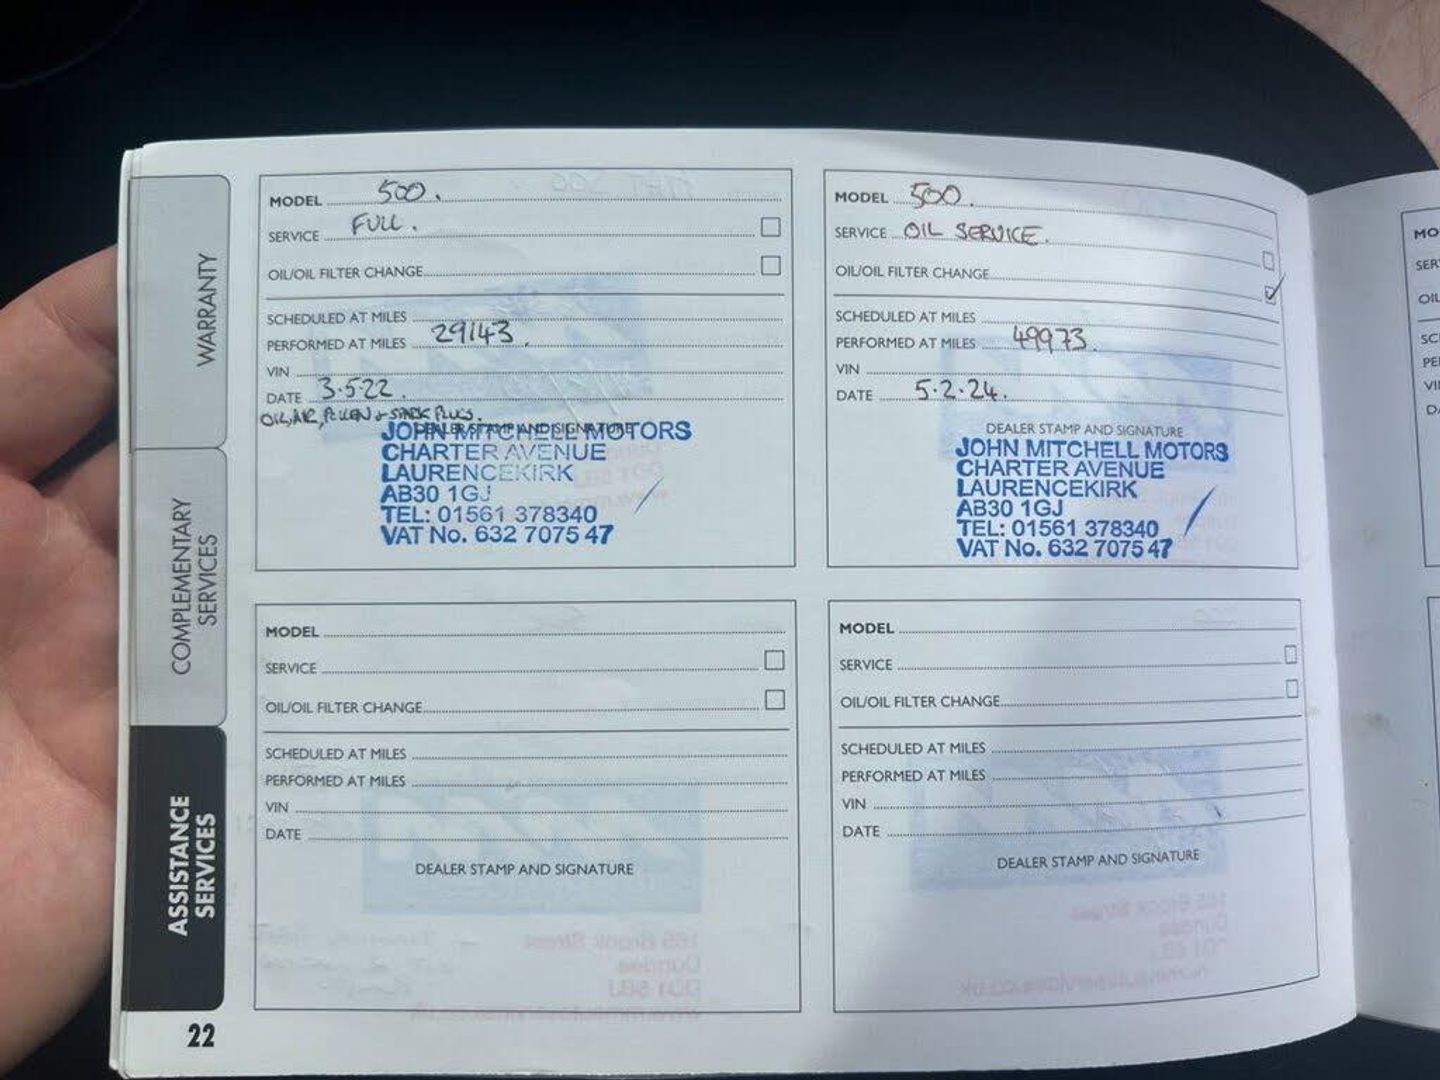 WARRANTY
COMPLEMENTARY
SERVICES
ASSISTANCE
SERVICES
22
MODEL 500.
SERVICE FULL.
OIL/OIL FILTER CHANGE
SCHEDULED AT MILES
PERFORMED AT MILES 29143.
VIN
DATE 3.5.22.
OIL, AIR, POLLEN & SPARK PLUGS.
DEALER STAMP AND SIGNATURE
JOHN MITCHELL MOTORS
CHARTER AVENUE
LAURENCEKIRK
AB30 1GJ
TEL: 01561 378340
VAT No. 632 7075 47
MODEL 500.
SERVICE OIL SERVICE.
OIL/OIL FILTER CHANGE
SCHEDULED AT MILES
PERFORMED AT MILES 49973.
VIN
DATE 5.2.24.
DEALER STAMP AND SIGNATURE
JOHN MITCHELL MOTORS
CHARTER AVENUE
LAURENCEKIRK
AB30 1GJ
TEL: 01561 378340
VAT No. 632 7075 47
MODEL
SERVICE
OIL/OIL FILTER CHANGE
SCHEDULED AT MILES
PERFORMED AT MILES
VIN
DATE
DEALER STAMP AND SIGNATURE
MODEL
SERVICE
OIL/OIL FILTER CHANGE
SCHEDULED AT MILES
PERFORMED AT MILES
VIN
DATE
DEALER STAMP AND SIGNATURE